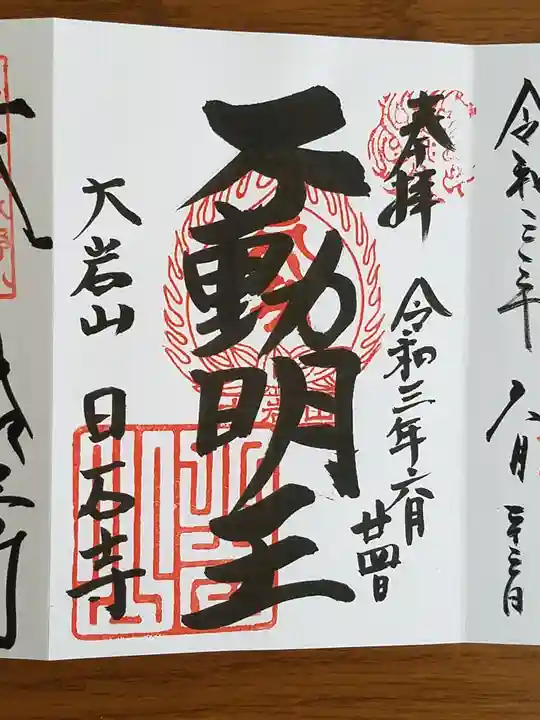 令和三年六月二十三日
奉拝
令和三年六月廿四日
不動明王
大岩山 日石寺